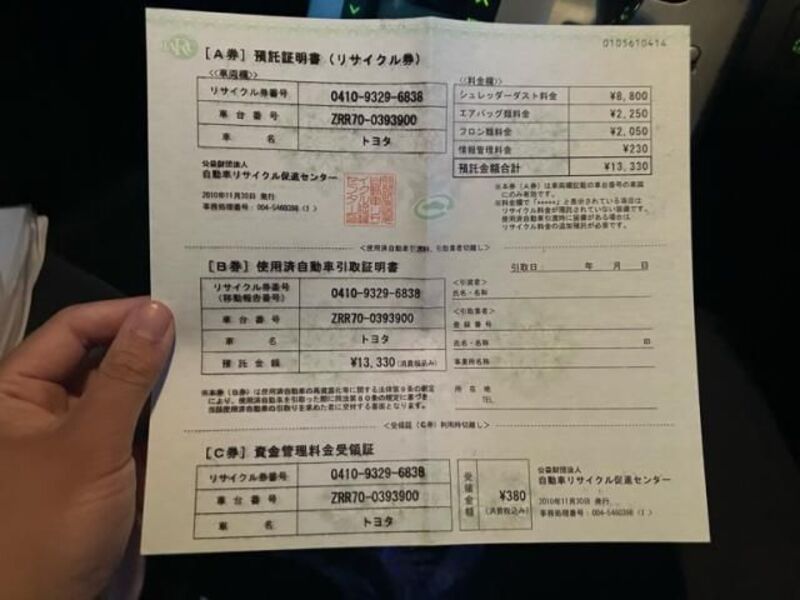 0105610414
[A券] 預託証明書(リサイクル券)
<<車両欄>>
リサイクル券番号 0410-9329-6838
車台番号 ZRR70-0393900
車名 トヨタ
<<料金欄>>
シュレッダーダスト料金 ¥8,800
エアバッグ類料金 ¥2,250
フロン類料金 ¥2,050
情報管理料金 ¥230
預託金額合計 ¥13,330
公益財団法人
自動車リサイクル促進センター
2010年11月30日 発行
事務処理番号:004-5460398
※本券(A券)は車両欄記載の車台番号の車両
にのみ有効です。
※料金欄で「*****」と表示されている項目は
リサイクル料金が預託されていない装備です。
使用済自動車引渡時に装備がある場合は
リサイクル料金の追加預託が必要です。
[B券] 使用済自動車引取証明書
引取日: 年 月 日
リサイクル券番号
(移動報告番号) 0410-9329-6838
車台番号 ZRR70-0393900
車名 トヨタ
預託金額 ¥13,330(消費税込み)
<引渡者>
氏名・名称
<引取業者>
登録番号
氏名・名称 印
事業所名称
所在地
TEL
<受領証(C券)利用時切離し>
[C券] 資金管理料金受領証
リサイクル券番号 0410-9329-6838
車台番号 ZRR70-0393900
車名 トヨタ
受領金額 ¥380
(消費税込み)
公益財団法人
自動車リサイクル促進センター
2010年11月30日 発行
事務処理番号:004-5460398